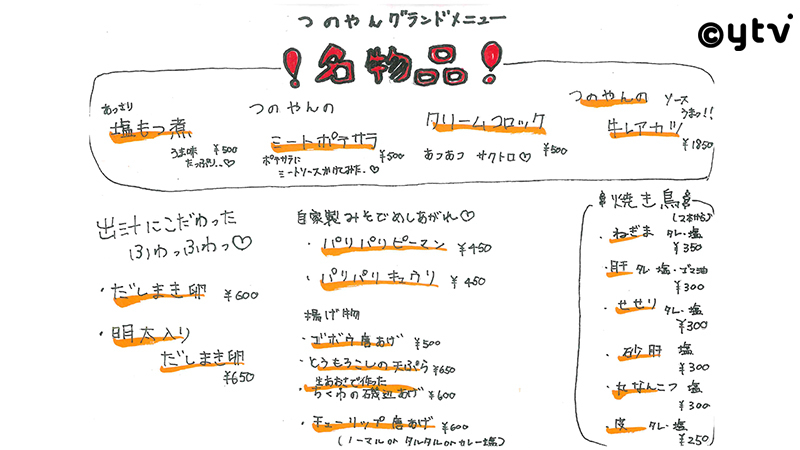 つのやんグランドメニュー
©ytv
！名物品！
あっさり
塩もつ煮
¥500
つのやんの
ミートポテサラ
¥500
ポテサラに
ミートソースかけてみた。♡
クリームコロック
¥500
あつあつ サクトロ♡
つのやんの
ソース
うまっ！！
牛レアカツ
¥1850
出汁にこだわった
ふわっふわっ♡
・だしまき卵 ¥600
・明太入り
だしまき卵
¥650
自家製みそでめしあがれ♡
・パリパリピーマン ¥450
・パリパリキュウリ ¥450
揚げ物
・ゴボウ唐あげ ¥500
・とうもろこしの天ぷら ¥650
生あおさで作った
・ちくわの磯辺あげ ¥600
・チューリップ唐あげ ¥600
(ノーマル or タルタル or カレー塩)
焼き鳥
(2本から)
・ねぎま タレ・塩
¥350
・肝 タレ・塩・ゴマ油
¥300
・せせり タレ・塩
¥300
・砂肝 塩
¥300
・丸なんこつ 塩
¥300
・皮 タレ・塩
¥250